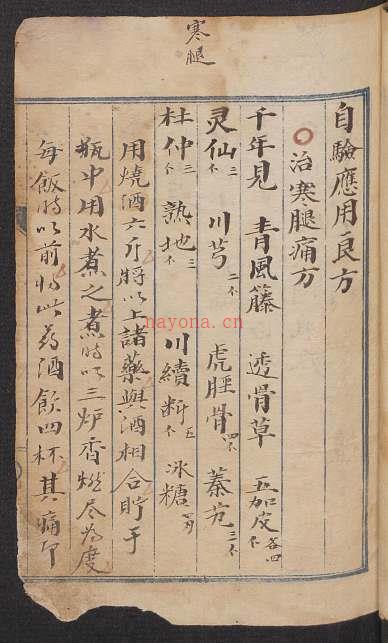 寒腿
自驗應用良方
治寒腿痛方
千年見 青風籐 透骨草 五加皮各四
灵仙三 川芎二 虎脛骨四 秦艽三
杜仲三 熟地三 川續断五 冰糖
用燒酒六斤將以上諸藥與酒相合貯于
瓶中用水煮之煮時以三炉香燃尽為度
每飯時以前将此药酒飲四杯其痛即
nayona.cn